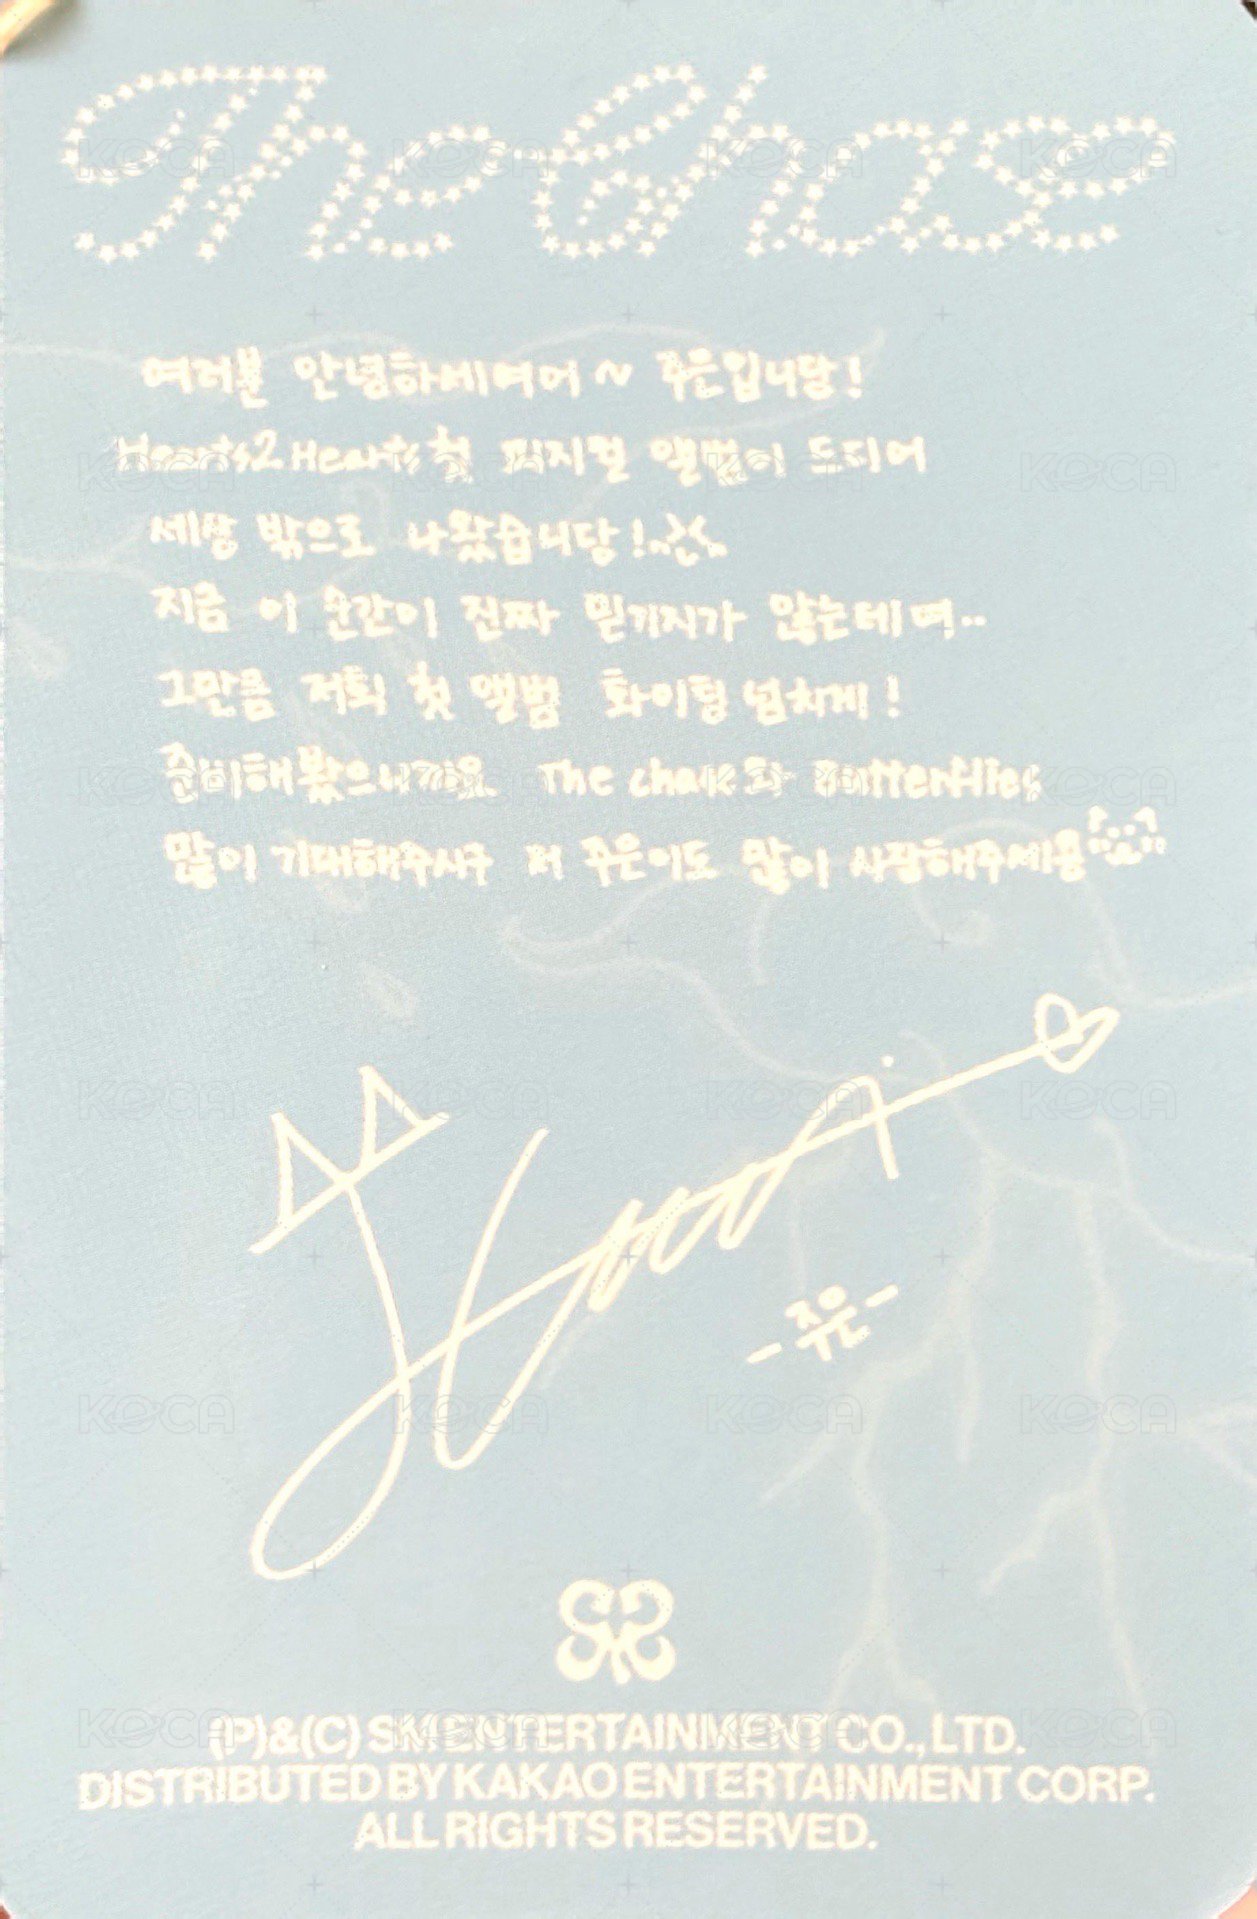 The Chase
여러분 안녕하세여어~ 주은입니당!
Hearts2Hearts 첫 피지컬 앨범이 드디어
세상 밖으로 나왔습니당!
지금 이 순간이 진짜 믿기지가 않는데며..
그만큼 저희 첫 앨범 화이팅 넘치게!
준비해봤으니까요 The chase와 Butterflies
많이 기대해주시구 저 주은이도 많이 사랑해주세용
-주은-
(P)&(C) SM ENTERTAINMENT CO., LTD.
DISTRIBUTED BY KAKAO ENTERTAINMENT CORP.
ALL RIGHTS RESERVED.